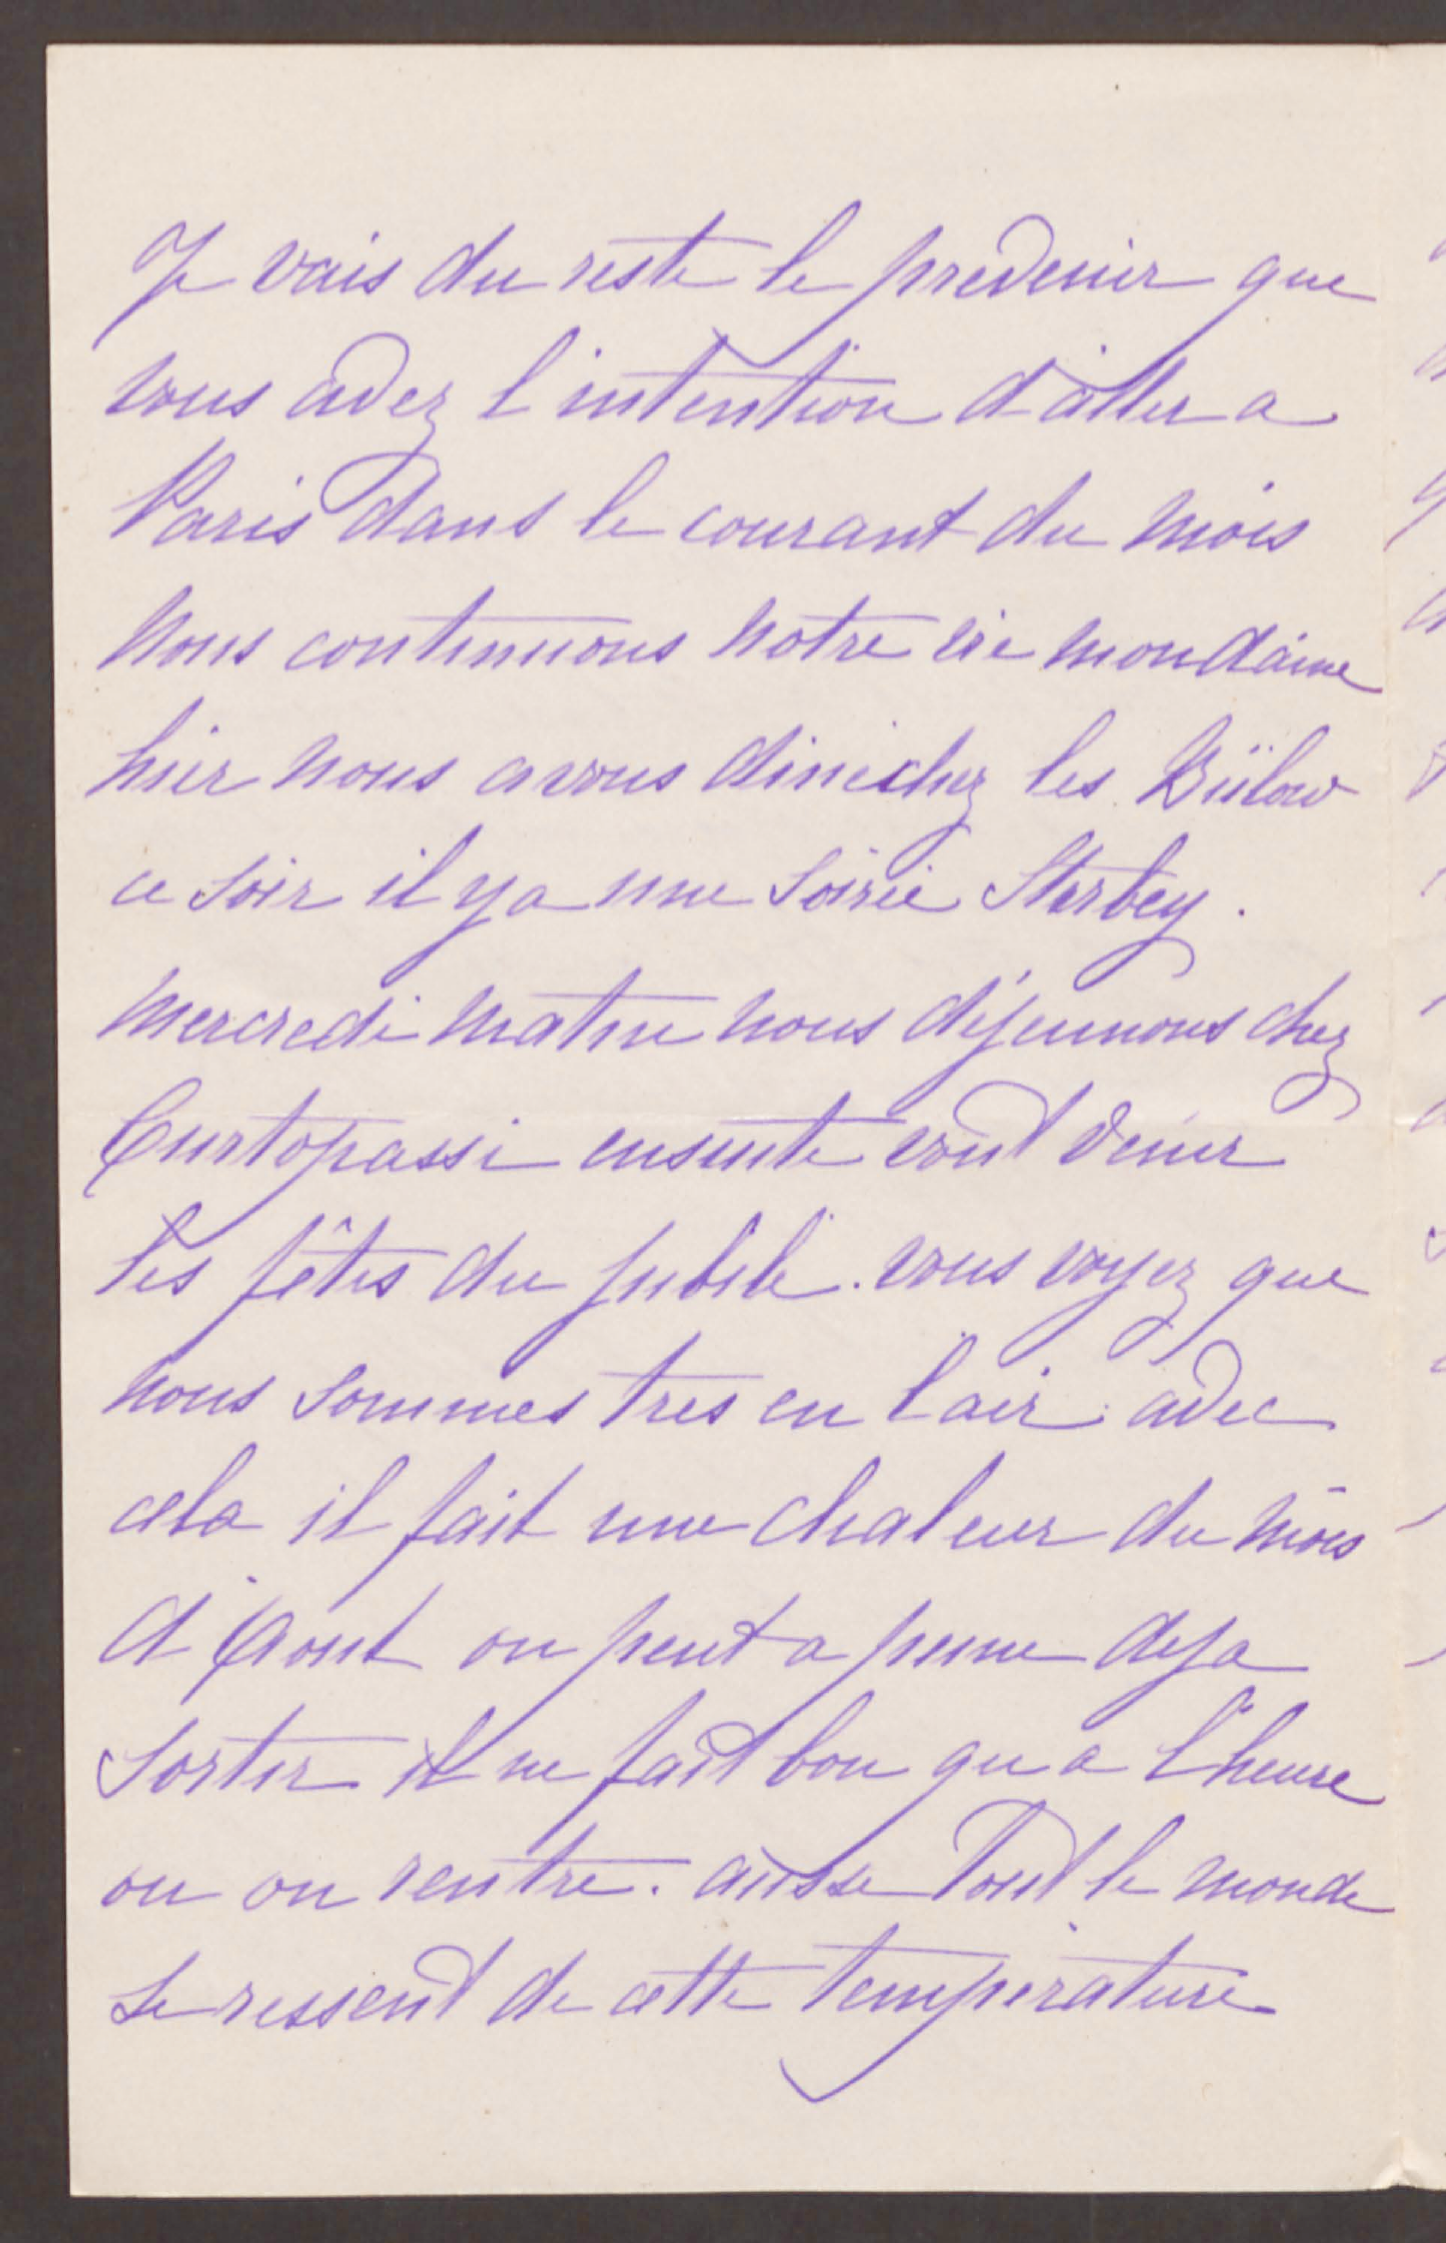 Je vais du reste le predenir que
vous avez l'intention d'aller a
Paris dans le courant du mois
Nous continuons notre vie mondaine
hier nous avons diné chez les Bülow
ce soir il y a une soirée Stirbey.
Mercredi matin nous déjeunons chez
Curtopassi ensuite vont venir
les fêtes du jubilé. vous voyez que
nous sommes tres en l'air. avec
cela il fait une chaleur du mois
d'Aout on peut a peine deja
sortir il ne fait bon qu a l'heure
ou on rentre. aussi Tout le monde
se ressent de cette temperature